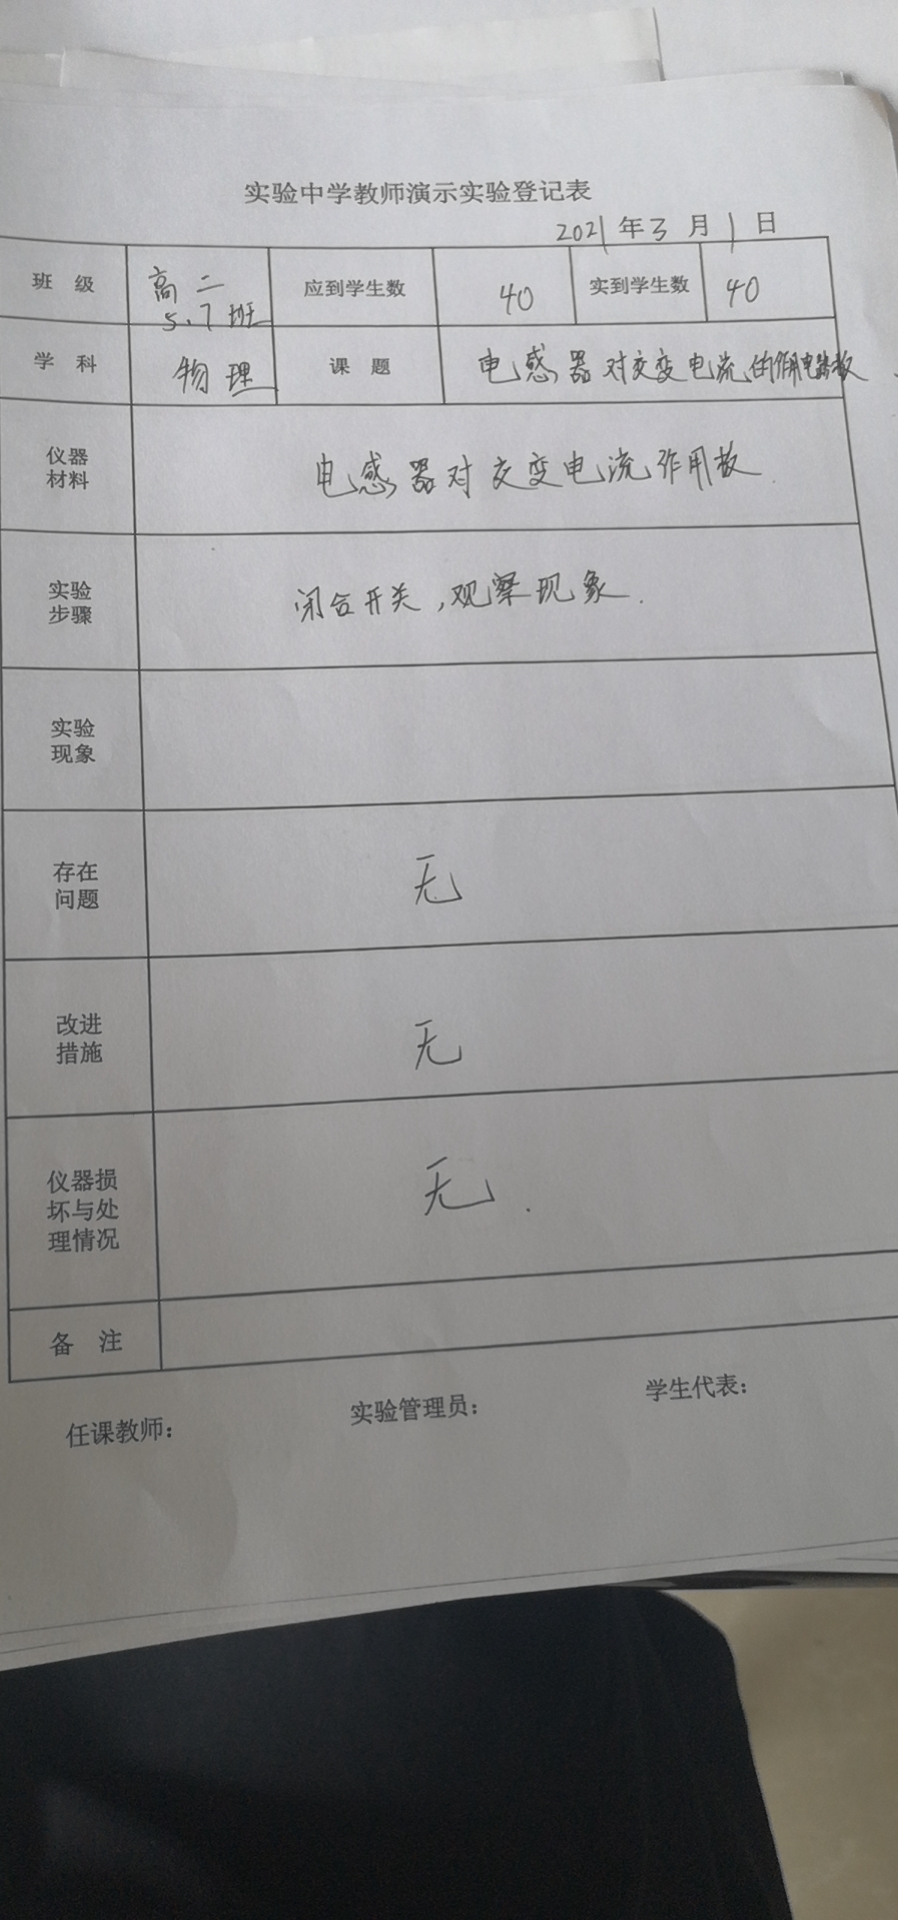 实验中学教师演示实验登记表
2021年3月1日
班 级 高二 应到学生数 40 实到学生数 40
5、7班
学 科 物理 课 题 电感器对交变电流的作用电路板
仪器
材料
电感器对交变电流作用板
实验
步骤
闭合开关,观察现象.
实验
现象
存在
问题
无
改进
措施
无
仪器损
坏与处
理情况
无.
备 注
任课教师: 实验管理员: 学生代表: